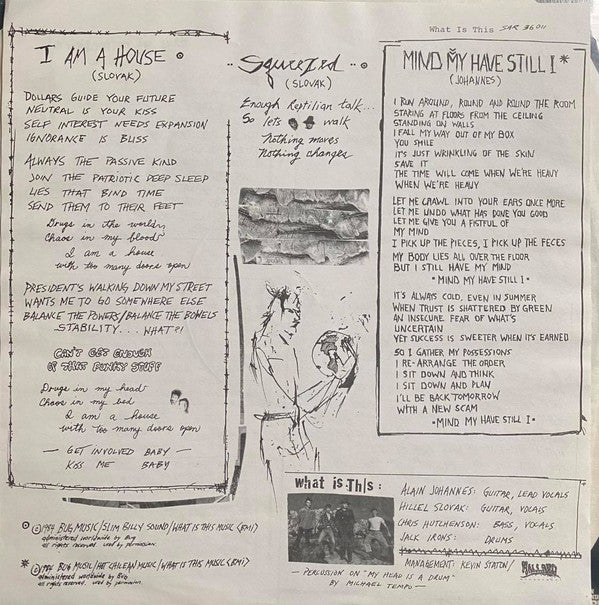 What Is This SAR 36011
I AM A HOUSE
(SLOVAK)
DOLLARS GUIDE YOUR FUTURE
NEUTRAL IS YOUR KISS
SELF INTEREST NEEDS EXPANSION
IGNORANCE IS BLISS
ALWAYS THE PASSIVE KIND
JOIN THE PATRIOTIC DEEP SLEEP
LIES THAT BIND TIME
SEND THEM TO THEIR FEET
Drugs in the world,
Chaos in my blood
I am a house
with too many doors open
PRESIDENT'S WALKING DOWN MY STREET
WANTS ME TO GO SOMEWHERE ELSE
BALANCE THE POWERS/BALANCE THE BOWELS
STABILITY.... WHAT?!
CAN'T GET ENOUGH
OF THAT FUNKY STUFF
Drugs in my head
Chaos in my bed
I am a house
with too many doors open
— GET INVOLVED BABY —
KISS ME BABY
SQueeZed
(SLOVAK)
Enough Reptilian talk...
So lets walk
Nothing moves
Nothing changes
MIND MY HAVE STILL I*
(JOHANNES)
I RUN AROUND, ROUND AND ROUND THE ROOM
STARING AT FLOORS FROM THE CEILING
STANDING ON WALLS
I FALL MY WAY OUT OF MY BOX
YOU SMILE
IT'S JUST WRINKLING OF THE SKIN
SAVE IT
THE TIME WILL COME WHEN WE'RE HEAVY
WHEN WE'RE HEAVY
LET ME CRAWL INTO YOUR EARS ONCE MORE
LET ME UNDO WHAT HAS DONE YOU GOOD
LET ME GIVE YOU A FISTFUL OF
MY MIND
I PICK UP THE PIECES, I PICK UP THE FECES
MY BODY LIES ALL OVER THE FLOOR
BUT I STILL HAVE MY MIND
• MIND MY HAVE STILL I •
IT'S ALWAYS COLD, EVEN IN SUMMER
WHEN TRUST IS SHATTERED BY GREEN
AN INSECURE FEAR OF WHAT'S
UNCERTAIN
YET SUCCESS IS SWEETER WHEN IT'S EARNED
SO I GATHER MY POSESSIONS
I RE-ARRANGE THE ORDER
I SIT DOWN AND THINK
I SIT DOWN AND PLAN
I'LL BE BACK TOMORROW
WITH A NEW SCAM
• MIND MY HAVE STILL I •
what is This:
ALAIN JOHANNES: GUITAR, LEAD VOCALS
HILLEL SLOVAK: GUITAR, VOCALS
CHRIS HUTCHENSON: BASS, VOCALS
JACK IRONS: DRUMS
MANAGEMENT: KEVIN STATON/
BALLARD
— PERCUSSION ON "MY HEAD IS A DRUM"
BY MICHAEL TEMPO —
© 1984 BUG MUSIC/SLIM BILLY SOUND/WHAT IS THIS MUSIC <BMI>
administered worldwide by Bug
all rights reserved. used by permission.
* © 1984 BUG MUSIC/HOT CHILEAN MUSIC/WHAT IS THIS MUSIC <BMI>
administered worldwide by Bug
all rights reserved. used by permission.